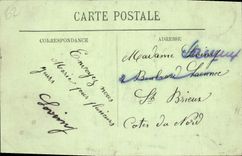 62
CARTE POSTALE
CORRESPONDANCE
ADRESSE
Envoyez nous
Marie pour plusieurs
jours
Madame
2 Boulevard
St Brieuc
Cotes du Nord